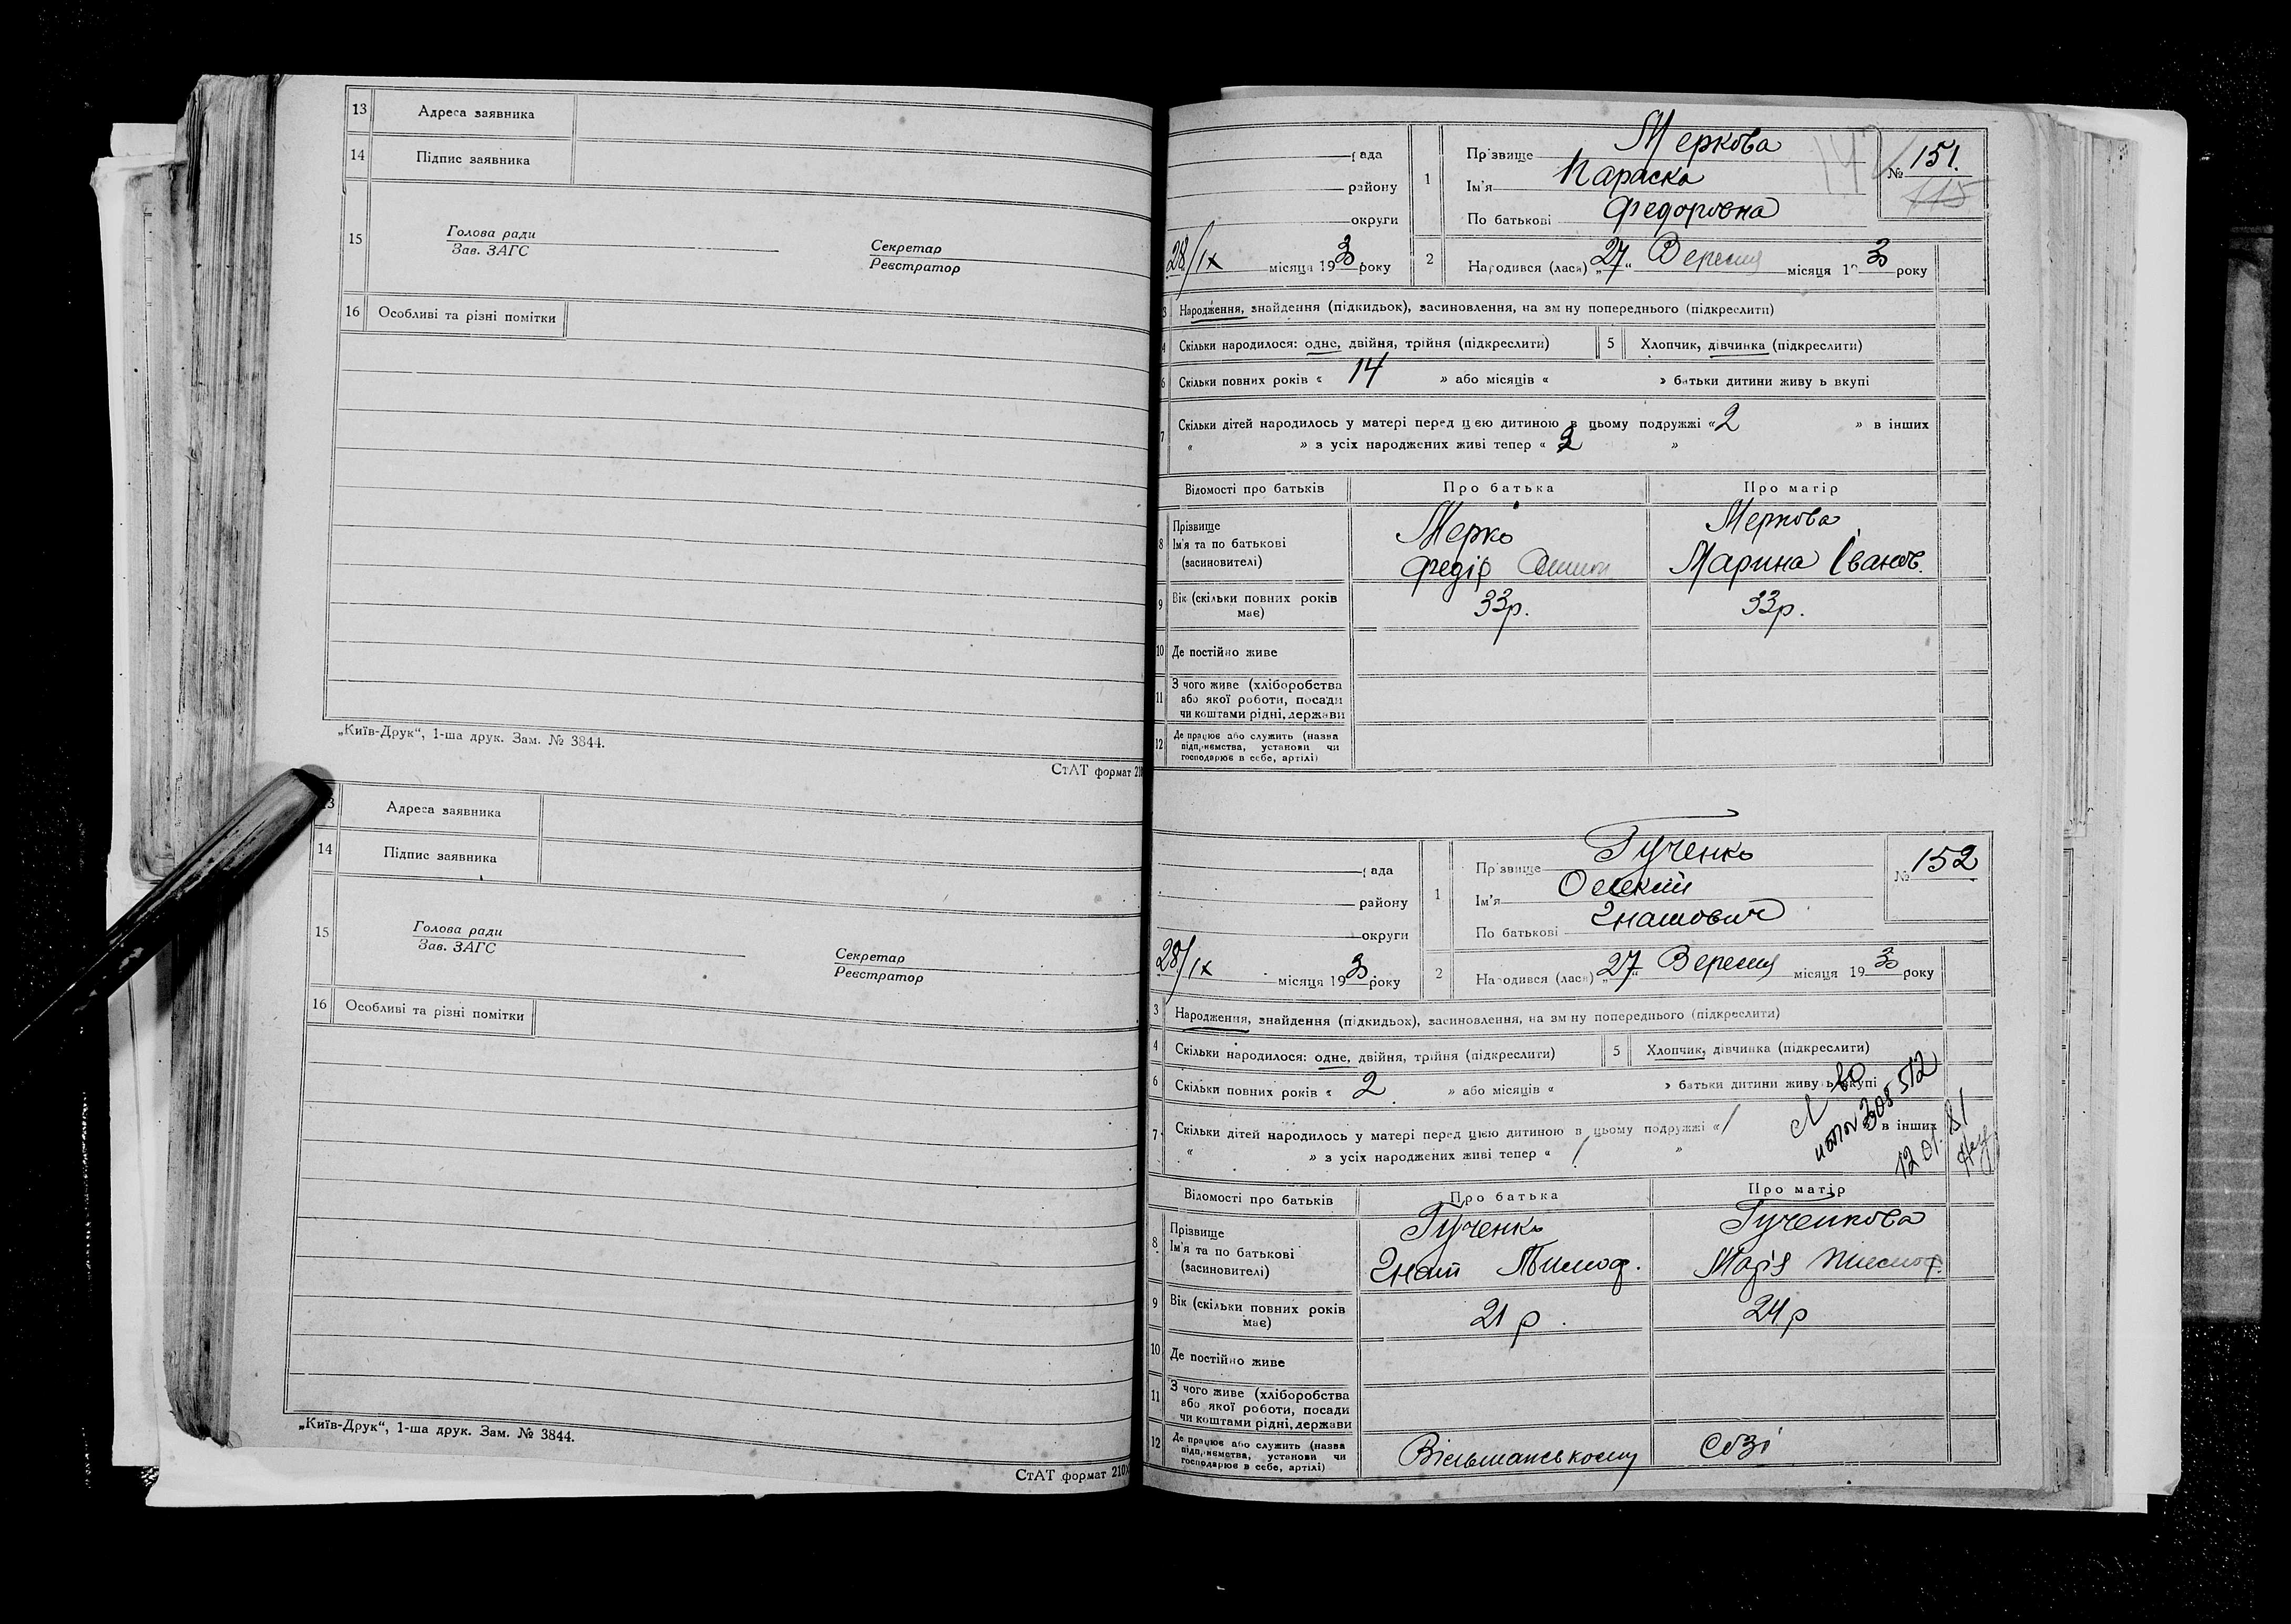 13 Адреса заявника
14 Підпис заявника
15 Голова ради
Зав. ЗАГС
Секретар
Реєстратор
16 Особливі та різні помітки
„Київ-Друк“, 1-ша друк. Зам. № 3844.
СтАТ формат 210
13 Адреса заявника
14 Підпис заявника
15 Голова ради
Зав. ЗАГС
Секретар
Реєстратор
16 Особливі та різні помітки
„Київ-Друк“, 1-ша друк. Зам. № 3844.
СтАТ формат 210
рада
району
округи
28/IX місяця 1930 року
1 Прізвище Меркова
Ім'я Параска
По батькові Федоровна
№ 151.
115
142
2 Народився (лася) „27“ Вересня місяця 1930 року
3 Народження, знайдення (підкидьок), засиновлення, на зм ну попереднього (підкреслити)
4 Скільки народилося: одне, двійня, трійня (підкреслити) 5 Хлопчик, дівчинка (підкреслити)
6 Скільки повних років « 14 » або місяців « » батьки дитини живу ь вкупі
7 Скільки дітей народилось у матері перед цією дитиною в цьому подружжі «2 » в інших
« » з усіх народжених живі тепер « 2 »
Відомості про батьків Про батька Про матір
8 Прізвище
Ім'я та по батькові
(засиновителі)
Мерко
Федір
Меркова
Марина Іванов.
9 Вік (скільки повних років
має)
33р. 33р.
10 Де постійно живе
11 З чого живе (хліборобства
або якої роботи, посади
чи коштами рідні, держави
12 Де працює або служить (назва
підприємства, установи чи
господарює в себе, артілі)
рада
району
округи
28/IX місяця 1930 року
1 Прізвище Гученко
Ім'я Олексій
По батькові Гнатович
№ 152
2 Народився (лася) „27“ Вересня місяця 1930 року
3 Народження, знайдення (підкидьок), засиновлення, на зм ну попереднього (підкреслити)
4 Скільки народилося: одне, двійня, трійня (підкреслити) 5 Хлопчик, дівчинка (підкреслити)
6 Скільки повних років « 2 » або місяців « » батьки дитини живу ь вкупі
7 Скільки дітей народилось у матері перед цією дитиною в цьому подружжі «1 » в інших
« » з усіх народжених живі тепер « 1 »
308512
12 01. 81
Відомості про батьків Про батька Про матір
8 Прізвище
Ім'я та по батькові
(засиновителі)
Гученко
Гнат Тимоф.
Гученкова
Марія Тимоф.
9 Вік (скільки повних років
має)
21 р. 24 р
10 Де постійно живе
11 З чого живе (хліборобства
або якої роботи, посади
чи коштами рідні, держави
12 Де працює або служить (назва
підприємства, установи чи
господарює в себе, артілі)
Вільшанському СОЗі